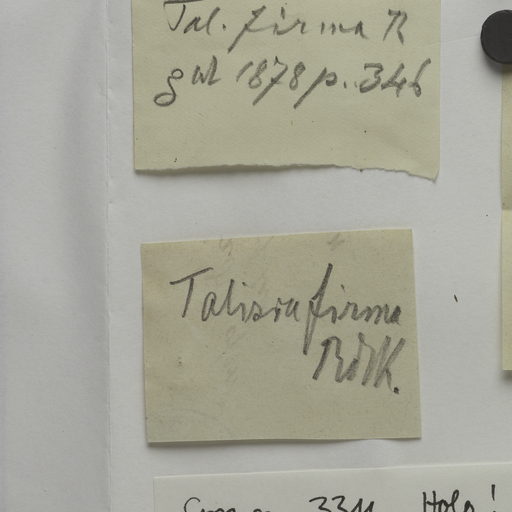 Tal. firma R
1878 p. 346
Talisia firma
Rdlk.
3311 Holo!